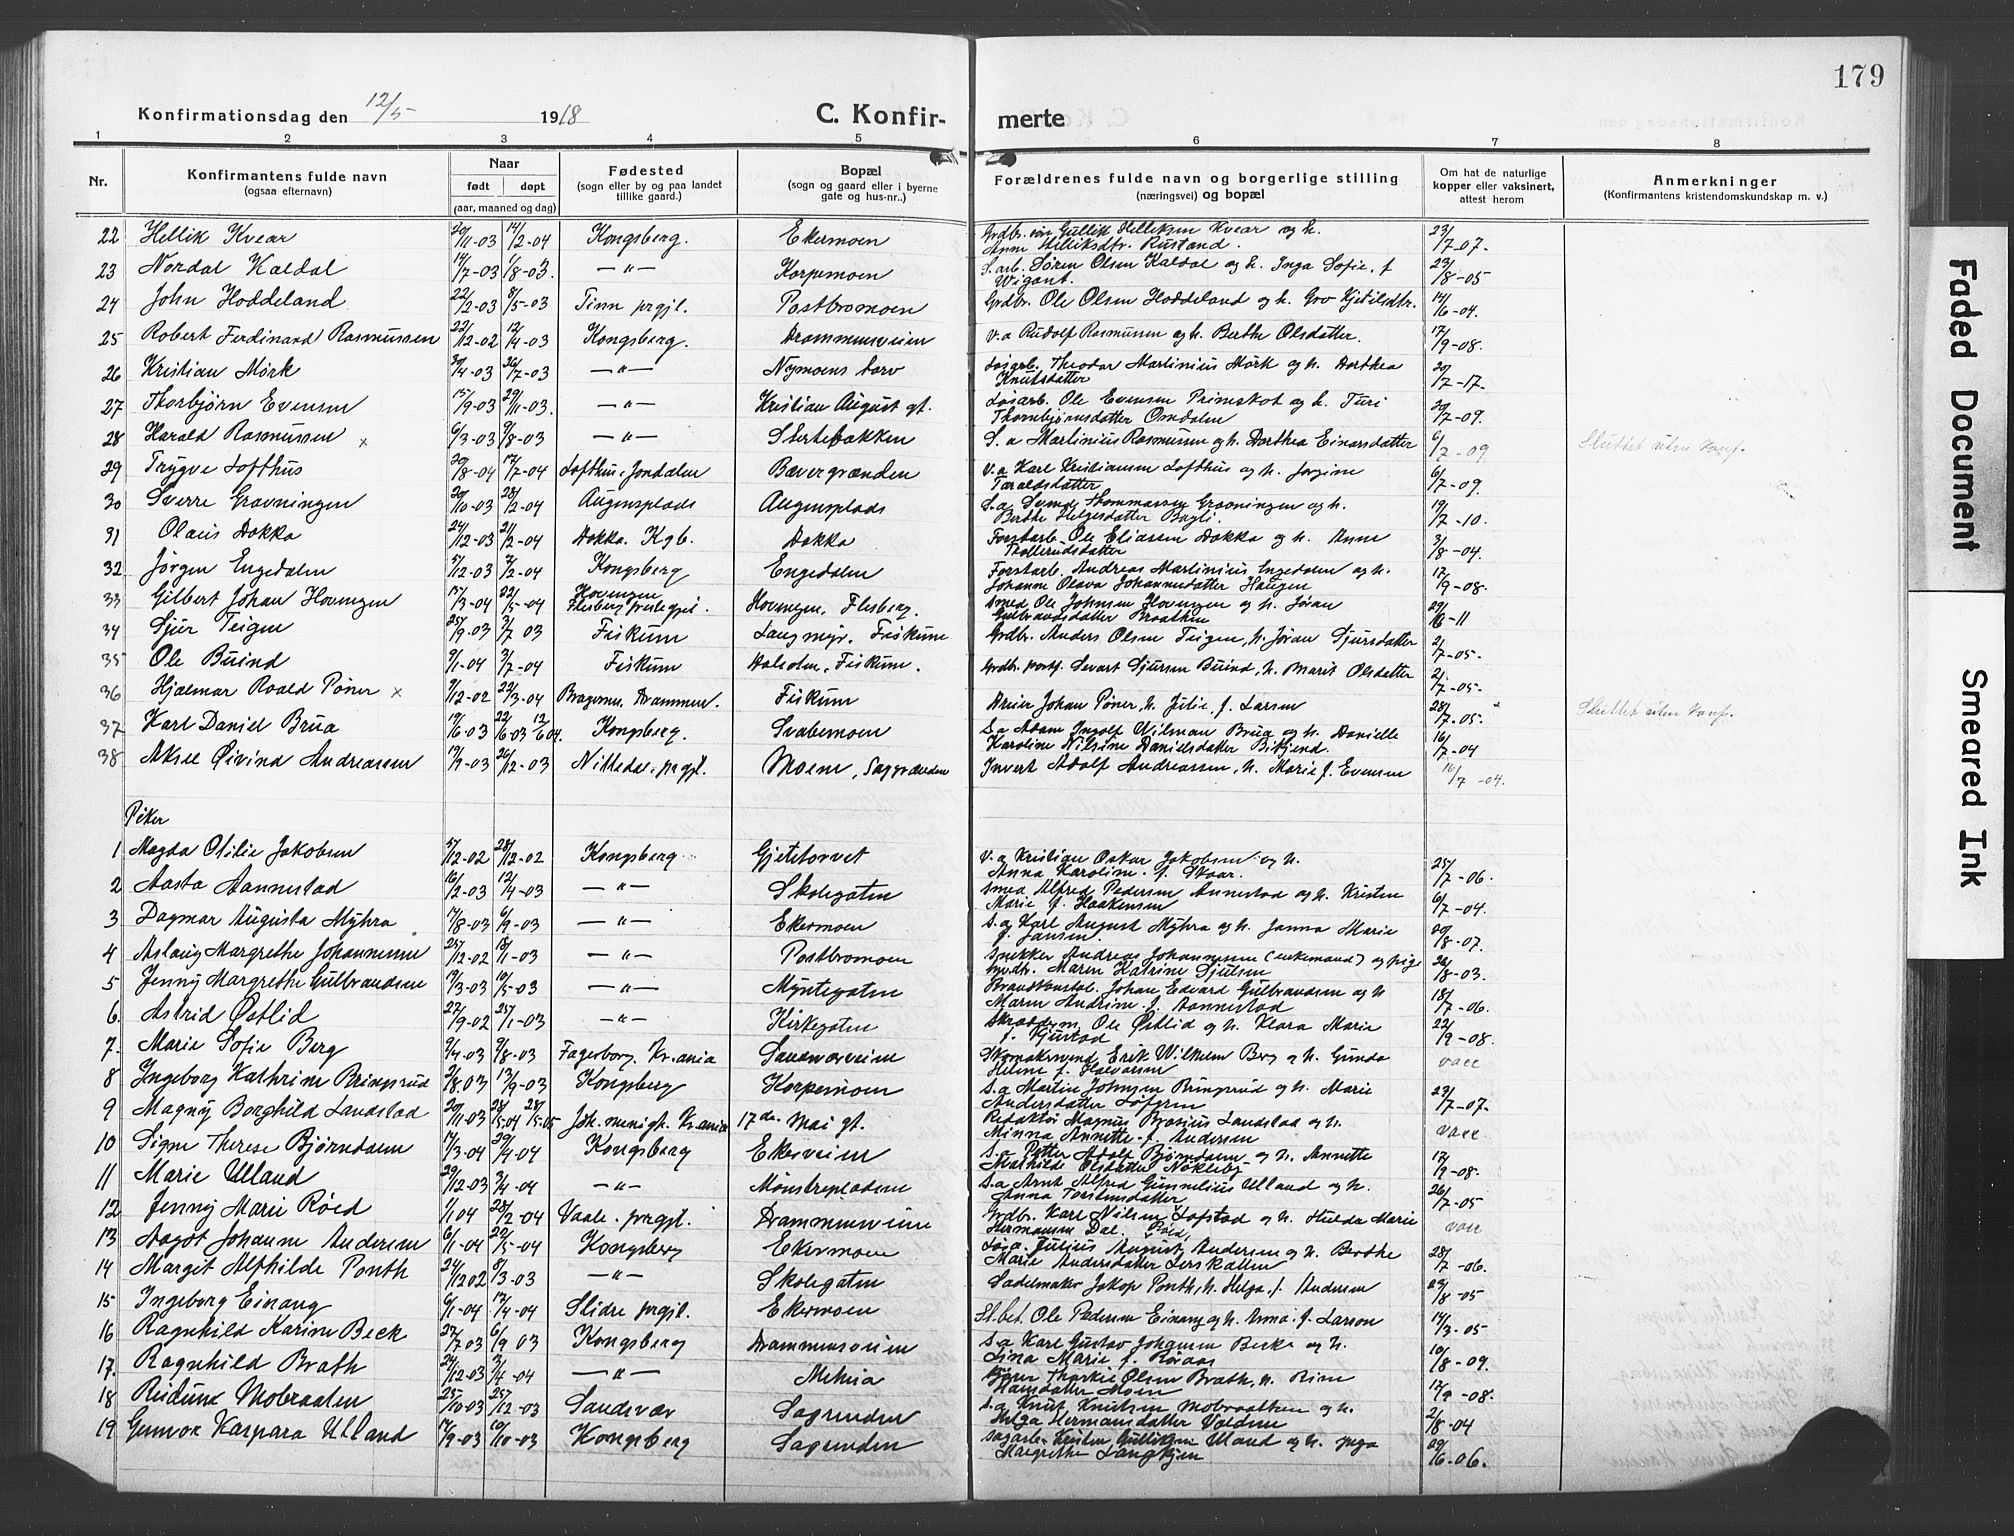 179
Konfirmationsdag den 12/5 1918 C. Konfir- merte
1 2 3 4 5 6 7 8
Nr. Konfirmantens fulde navn (ogsaa efternavn) Naar født døpt (aar, maaned og dag) Fødested (sogn eller by og paa landet tillike gaard.) Bopæl (sogn og gaard eller i byerne gate og hus-nr..) Forældrenes fulde navn og borgerlige stilling (næringsvei) og bopæl Om hat de naturlige kopper eller vaksinert, attest herom Anmerkninger (Konfirmantens kristendomskundskap m. v.)
22 Hellik Kvear 20/11-03 14/2-04 Kongsberg. Ekermoen Grdbr. Gullik Helliksen Kvear og h. Anne Helliksdtr. Rustand. 23/7-07.
23 Nordal Kaldal 14/7-03 1/8-03 —"— Korpemoen S.arb. Sören Olsen Kaldal og h. Inga Sofie, f Wigant. 23/8-05
24 John Hoddeland 22/2-03 8/5-03 Tinn prgjl. Postbromoen Grdbr. Ole Olsen Hoddeland og h. Gro Kjetilsdtr. 14/6-04.
25 Robert Ferdinand Rasmussen 22/12-02 12/4-03 Kongsberg. Drammensveien v.a Rudolf Rasmussen og h. Berthe Olsdatter. 17/9-08.
26 Kristian Mörk 30/4-03 26/7-03 —"— Nymoens torv Løsarb. Theodor Martinius Mörk og h. Dorthea Knutsdatter 20/7-17-
27 Thorbjörn Evensen 15/9-03 29/11-03. —"— Kristian August gt. Løsarb. Ole Evensen Primstot og h. Turi Thornbjørnsdatter Omdalen 20/7-09.
28 Harald Rasmussen x 6/3-03 9/8-03 —"— Stertebakken S.a Martinius Rasmussen og h. Dorthea Einarsdatter 6/7-09 Sluttet uten konf.
29 Trygve Lofthus 20/8-04 17/7-04 Lofthus, Jondalen Bævergrænden v.a Karl Kristiansen Lofthus og h. Jorgine Taraldsdatter 6/7-09.
30 Sverre Gravningen 20/10-03 28/2-04 Augensplads Augensplads S.a. Svend Thommassen Gravningen og h. Berthe Helgesdatter Bagli. 19/7-10.
31 Olaus Dokka 24/12-03 21/2-04 Dokka. Kgb. Dokka Forstarb. Ole Eliassen Dokka og h. Anne Tollerudsdatter 3/8-04.
32 Jörgen Engedalen 5/12-03 7/2-04 Kongsberg Engedalen Forstarb. Andreas Martinius Engedalen og h. Johanne Olava Johannesdatter Haugen 17/9-08.
33 Gilbert Johan Hovengen 15/3-04 22/5-04 Hovengen Flesberg prestegjel. Hovengen, Flesberg. Smed Ole Johnsen Hovengen og h. Jöran Gulbrandsdatter Braathen 29/6-11
34 Sjur Teigen 25/9-03 3/7 03 Fiskum Langmyr. Fiskum Grdbr. Anders Olsen Teigen, h. Jöran Sjursdatter 2/7-05.
35 Ole Buind 9/1-04 3/7-04 Fiskum Fiskum. Grdbr. Sevart Sjursen Buind, h. Marit Olsdatter 2/7-05.
36 Hjalmar Roald Pöner x 9/12-02 22/3-04 Bragernes Drammen. Fiskum Dreier Johan Pöner, h. Julie, f. Larsen 28/7-05. Sluttet uten konf.
37 Karl Daniel Brua 19/6-03 22/6-03 12/6 04. Kongsberg. Svabemoen S.a Adam Ingolf Wilman Brua og h. Danielle Karoline Nilsine Danielsdatter Bikjend. 16/7-04
38 Aksel Öivind Andreassen 19/9-03 26/12-03 Nittedal prgjl. Moene, Saggrænden Invert Adolf Andreassen, h. Marie f. Evensen 16/7-04.
Piker
1 Magda Otilie Jakobsen 5/12-02 28/12-02 Kongsberg Gjetetorvet v.a Kristian Oskar Jakobsen og h. Anna Karoline f. Skaar. 25/7-06.
2 Aasta Aannestad 16/2-03 12/4-03 —"— Skolegaten Smed Alfred Pedersen Annestad og h. Kristen Marie f. Haakensen 6/7-04.
3 Dagmar Augusta Myhra 17/8-03 6/9-03 —"— Ekermoen S.a Karl August Myhra og h. Janna Marie f. Jansen. 20/8-07.
4 Aslaug Margrethe Johannesen 25/12-02 18/1-03 —"— Postbromoen Snekker Andreas Johannessen (enkemand) og pige Maren Katrine Sjulsen 22/8-03.
5 Jenny Margrethe Gulbrandsen 19/3-03 10/5-03 —"— Myntegaten Brandkonstabel Johan Edvard Gulbrandsen og h Maren Andrine f. Aannestad 18/7-06.
6. Astrid Østlid 27/9-02 25/1-03 —"— Kirkegaten Skræddem. Ole Østlid og h. Klara Marie f. Fjustad 22/9-08.
7. Marie Sofie Berg 9/4-03 9/8-03 Fagerborg, Kr.ania Sandsværveien Skomakersvend Erik Wilhelm Berg og h. Gunda Helene f. Halvorsen vacc
8 Ingeborg Kathrine Bringsrud 2/8.03 13/9-03 Kongsberg Korpemoen S.a Martin Johnsen Bringsrud og h. Marie Andersdatter Løfgren 23/7-07.
9 Magny Borghild Landstad 20/11-03 28/5-04 28/5-05 Joh. menigh. Kr.ania 17de Mai gt. Redaktör Magnus Brosius Landstad og h. Minna Annette f. Andersen vacc.
10 Signe Therese Björndalen 14/3-04 29/4-04 Kongsberg Ekerveien S.a. Petter Adolf Björndalen og h. Annette Mathilde Olsdatter Nökleby 17/9-08.
11 Marie Ulland 29/12-03 3/4-04 —"— Mönstrepladsen S.a Arnt Alfred Gunnelius Ulland og h. Anna Torstensdatter 26/7-05
12 Jenny Marie Röed 1/1 04 28/2-04 Vaale. prgjl. Drammensveien Grdbr. Karl Nilsen Lofstad og h. Hulda Marie Hermansen Dal. vacc
13 Aagot Johanne Andersen 6/1-04 22/5-04 Kongsberg Ekermoen Løs.a. Julius August Andersen og h. Berthe Marie Andersdatter Lerskallen 28/7-06.
14 Margit Alfhilde Ponth 24/12 02 8/3-03 —"— Skolegaten Sadelmaker Jakop Ponth, h. Helga f. Andersen 23/8-05
15 Ingeborg Einang 6/1-04 17/4-04 Slidre prgjl. Ekermoen St.bet. Ole Pedersen Einang og h. Anna f. Larson 14/3-05
16 Ragnhild Karine Beck 27/7 03 6/9 03 Kongsberg Drammensveien S.a Karl Gustav Johansen Becke og h. Lina Marie f. Röiaas 10/8-09.
17. Ragnhild Brath 24/12-03 3/4-04 —"— Meheia Thorkil Olsen Brath, h. Rine Hansdatter Moen 12/9-08.
18 Reidunn Mobraaten 25/10-03 25/12-03 Sandsvær Sagrenden S.a Knut Knutsen Mobraathen og h. Helga Hermansdatter Valdene 2/8-04
19 Gunvor Kaspara Ulland 17/9-03 10/10-03 Kongsberg Sagrenden Sagarb. Kristen Gulliksen Uland og h. Inga Margrethe Langkjen 29/6-06.
Faded Document
Smeared Ink